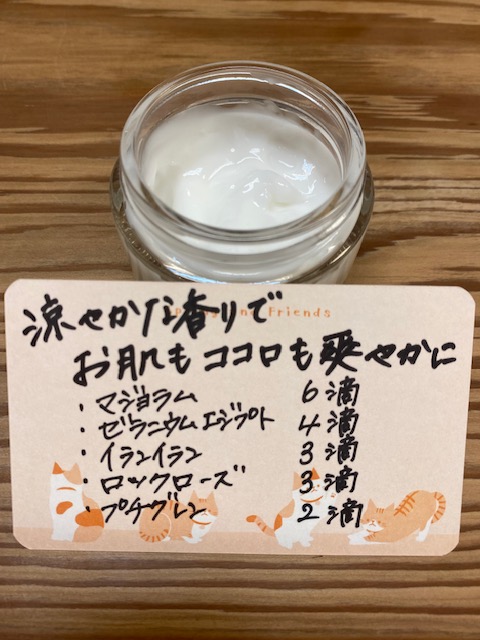 nd Friends
涼やかな香りで
お肌もココロも爽やかに
・マジョラム 6滴
・ゼラニウムエジプト 4滴
・イランイラン 3滴
・ロックローズ 3滴
・プチグレン 2滴